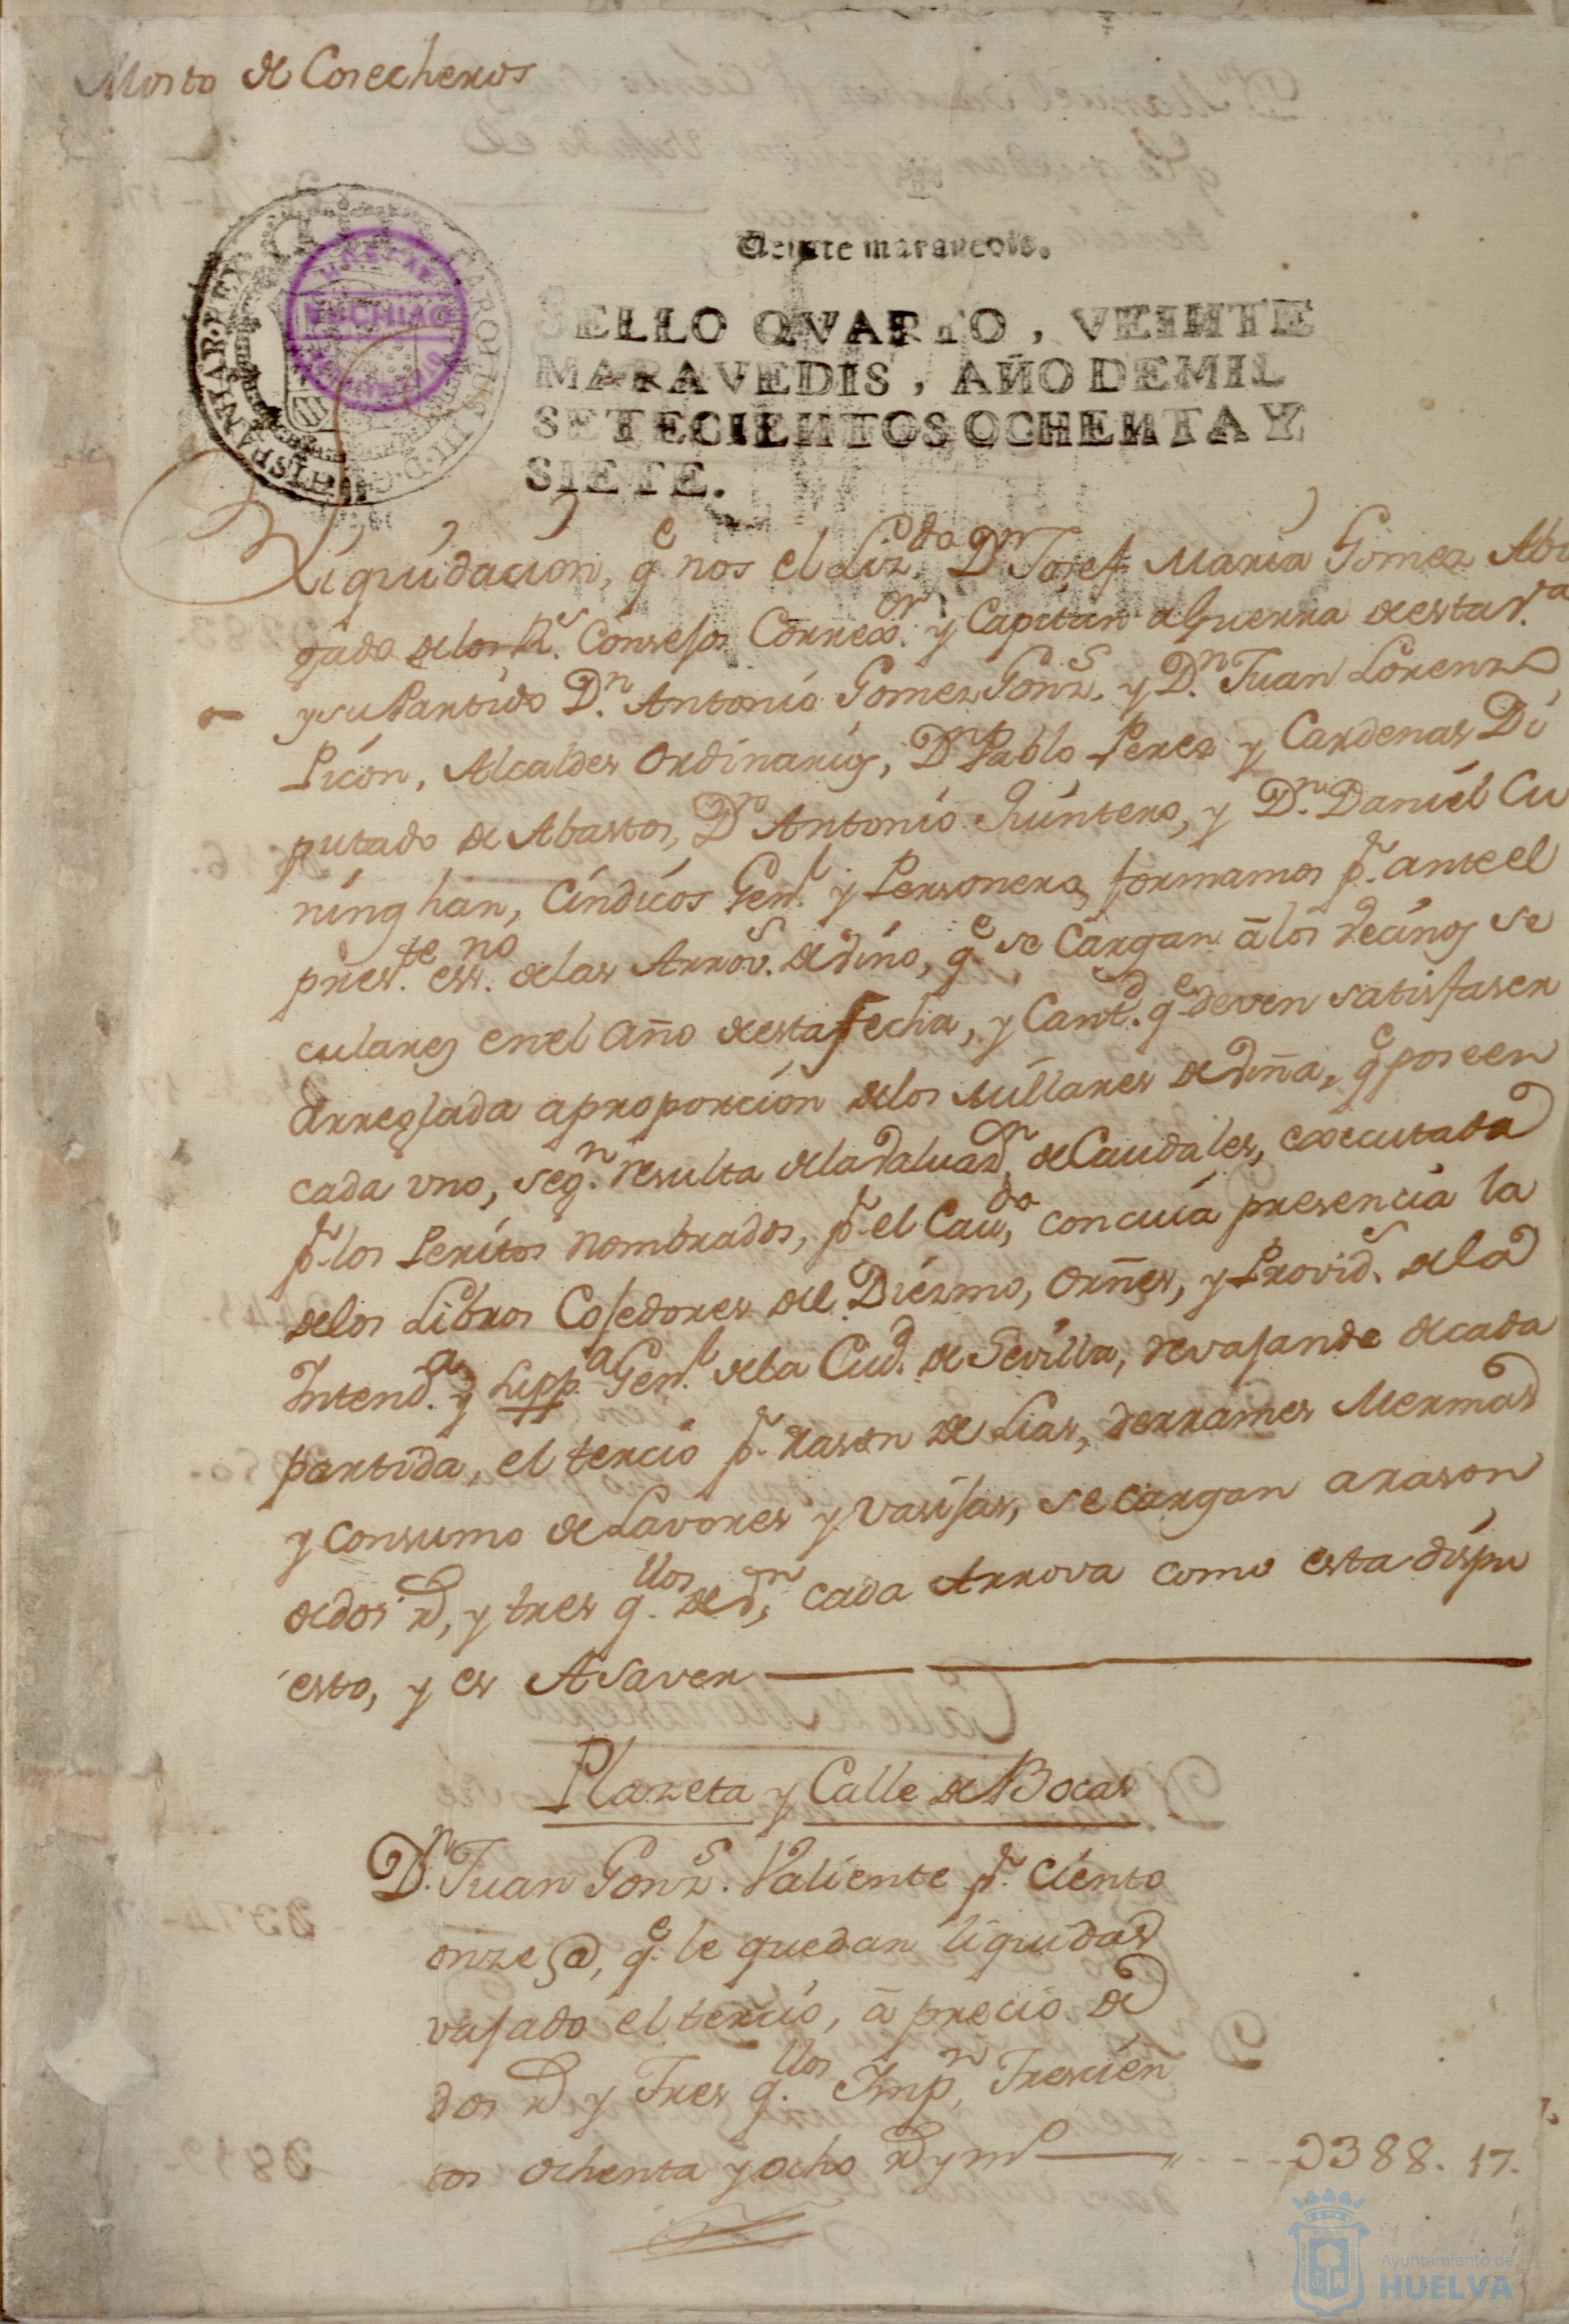 Mosto de Cosecheros
Veinte maravedis.
SELLO QVARTO, VEINTE
MARAVEDIS, AÑO DE MIL
SETECIENTOS OCHENTA Y
SIETE.
HISPANIAR. REX
CAROLUS III D. G.
Liquidacion, q.e nos el Liz.do D.n Josef Maria Gomez Abo
gado de los R.s Consejos Correx.or y Capitan aGuerra de esta V.a
y su Partido D.n Antonio Gomez Gonz.s y D.n Juan Lorenzo
Picon, Alcaldes Ordinarios, D.n Pablo Perez y Cardenas Di
putado de Abastos, D.n Antonio Quintero, y D.n Daniel Cu
ninghan, Cindicos Gen.l y Personero, formamos p.r ante el
pres.te ess.no de las Arrov.s de Vino, q.e se Cargan â los Vecinos se
culares en el Año de esta fecha, y Cant.d q.e deven satisfaser
Arreglada a proporcion de los Millares de Viña, q.e poseen
cada uno, seg.n resulta de la Valuaz.on de Caudales, executada
p.r los Peritos Nombrados, p.r el Cav.do, con cuia presencia la
de los Libros Cojedores del Diezmo, Orñes, y Provid.s de la
Intend.a y Supp.a Gen.l de la Ciud.d de Sevilla, revajando de cada
partida, el tercio p.r rason de Lias, derrames Mermas
y consumo de Lavores y Vasijas, se cargan a rason
de dos r.s, y tres q.llos de v.n, cada Arrova como esta dispu
esto, y es A Saver
Plazeta y Calle de Bocas
D.n Juan Gonz.s Valiente p.r ciento
onze @, q.e le quedan liquidas
vajado el tercio, â precio de
dos r.s y Tres q.llos Imp.n Trescien
tos ochenta y ocho r.s y m.o 388. 17.
Ayuntamiento de
HUELVA